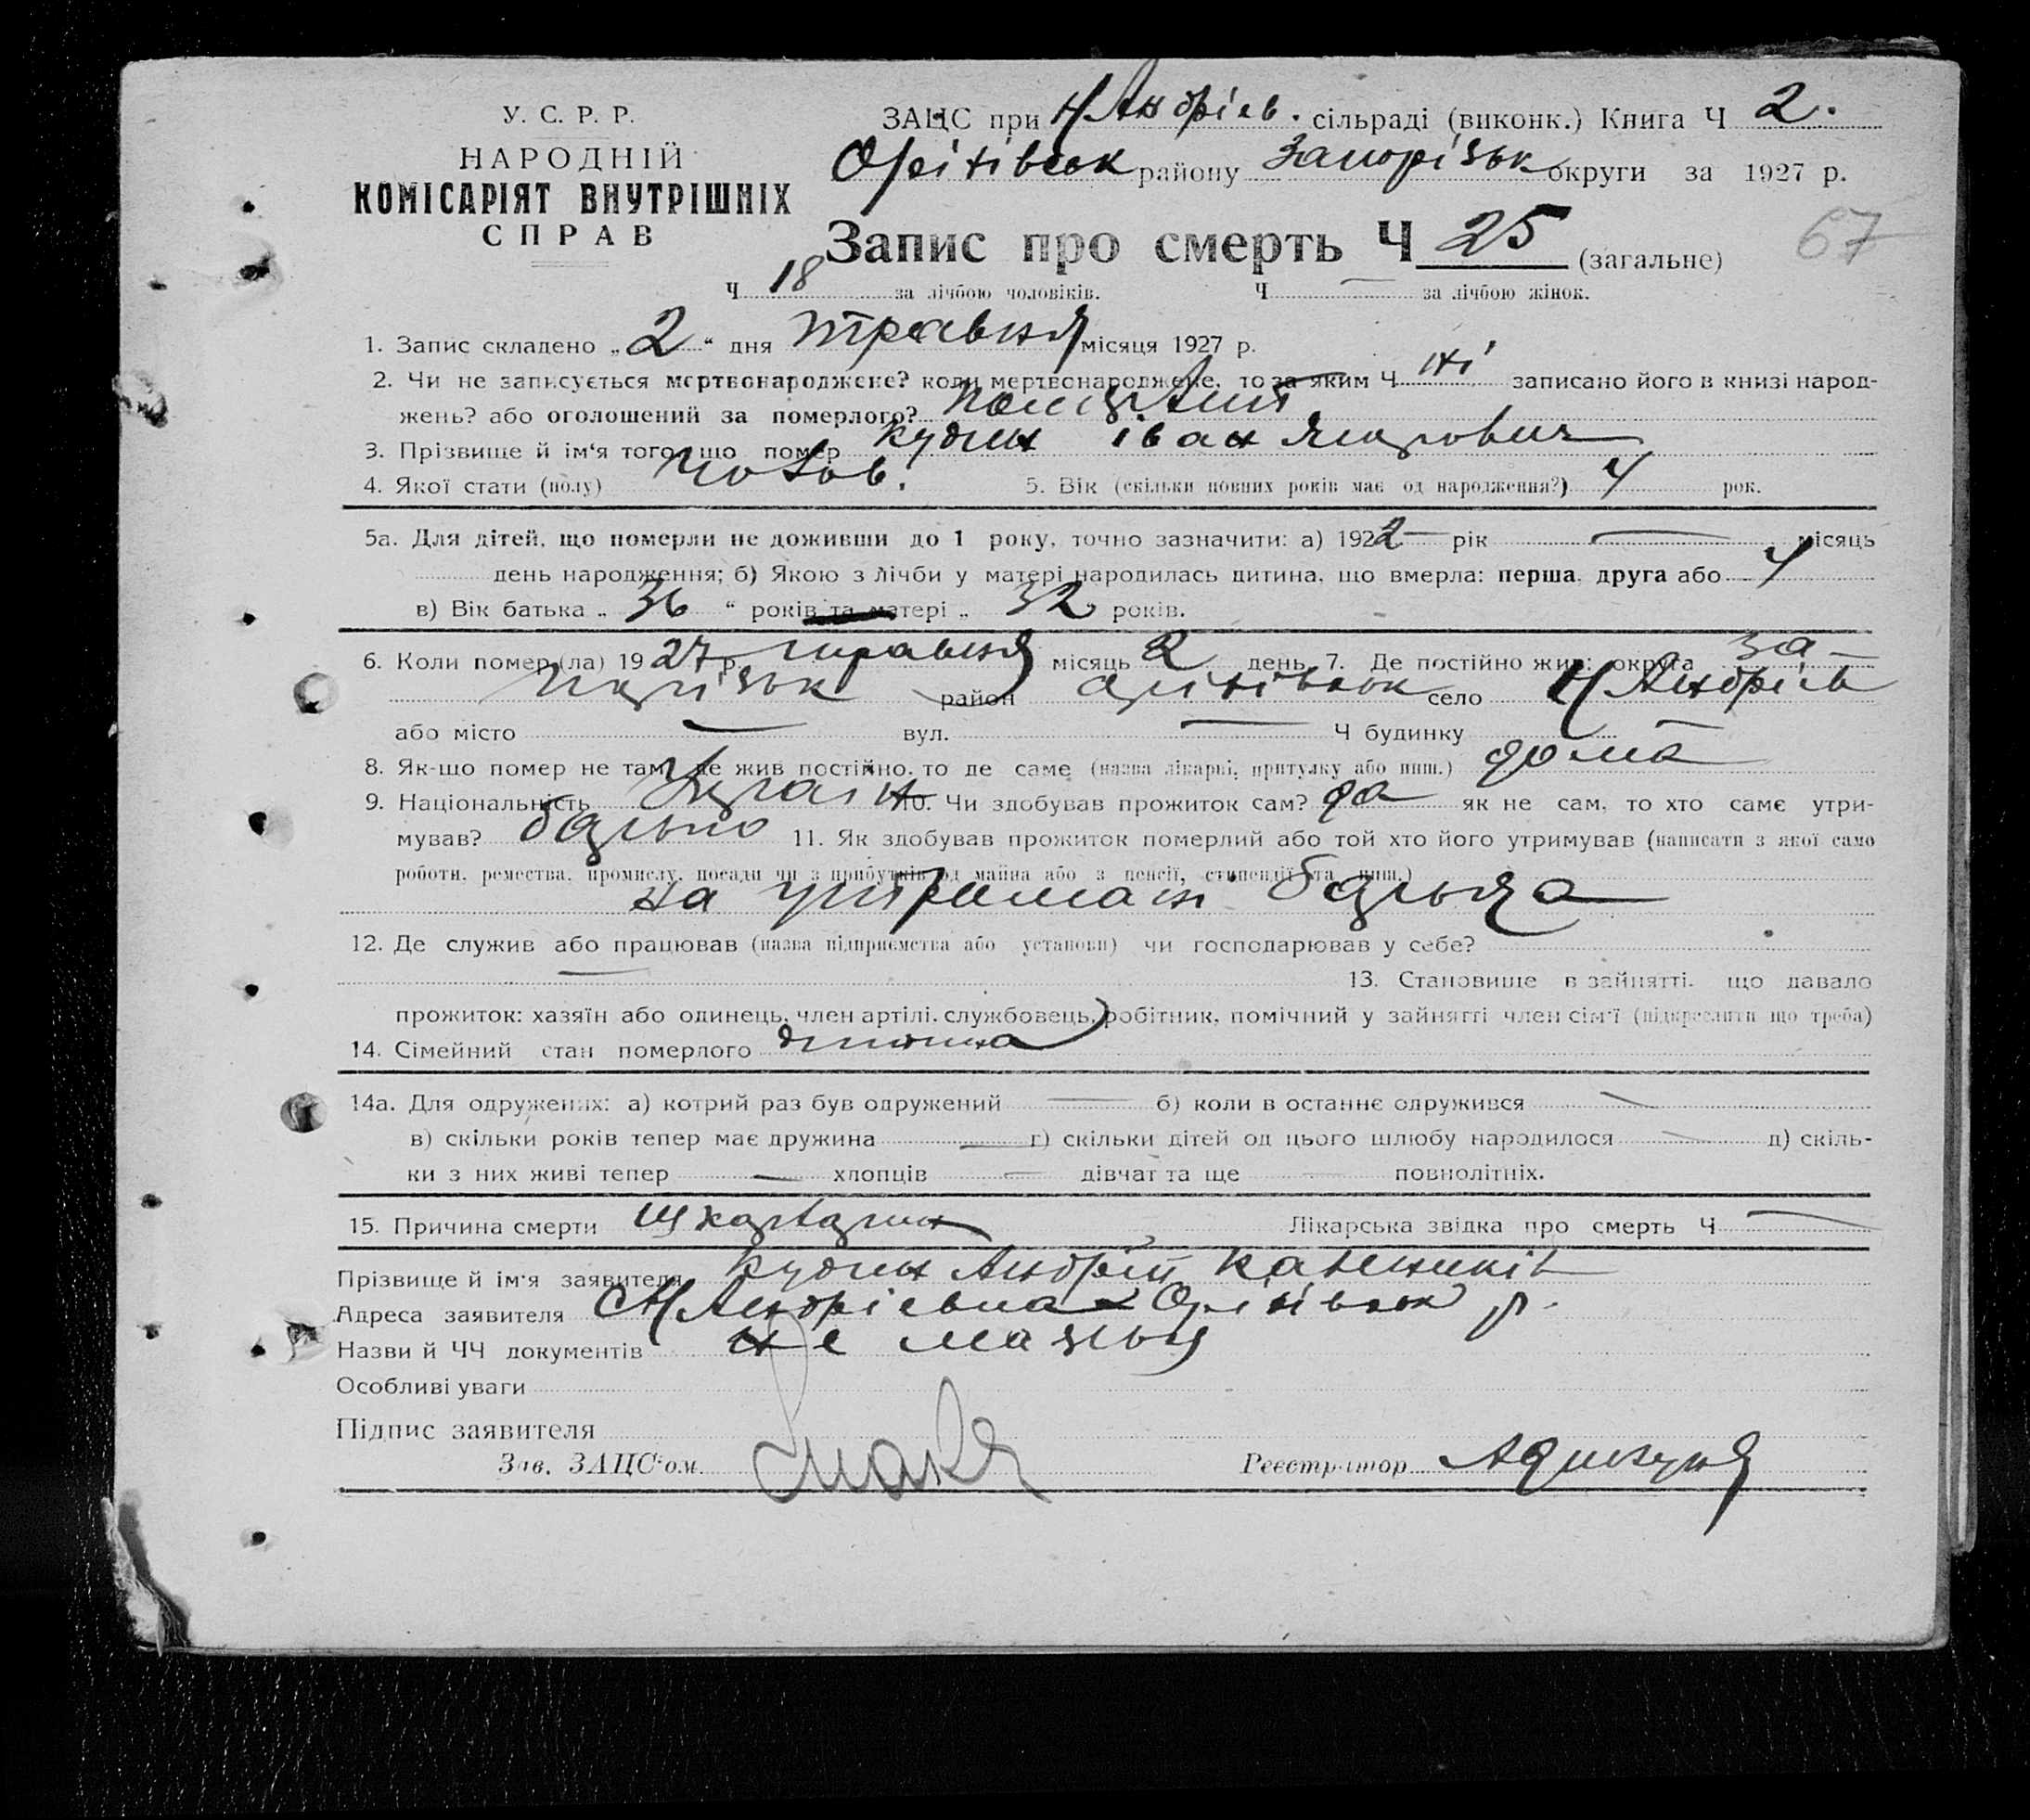 У. С. Р. Р.
НАРОДНІЙ
КОМІСАРІЯТ ВНУТРІШНІХ
СПРАВ
ЗАЦС при Н Андрієв. сільраді (виконк.) Книга Ч 2.
Оріхівськ району Запорізьк округи за 1927 р.
Запис про смерть Ч 25 (загальне)
67
Ч 18 за лічбою чоловіків. Ч — за лічбою жінок.
1. Запис складено „2“ дня травня місяця 1927 р.
2. Чи не записується мертвонароджене? коли мертвонароджене, то за яким Ч ні записано його в книзі народ-
жень? або оголошений за померлого?
3. Прізвище й ім'я того, що помер Кудин Іван
4. Якої стати (полу) чолов. 5. Вік (скільки повних років має од народження?) 4 рок.
5а. Для дітей, що померли не доживши до 1 року, точно зазначити: а) 1922 рік — місяць
день народження; б) Якою з лічби у матері народилась дитина, що вмерла: перша, друга або 4
в) Вік батька „36“ років та матері „32 років.
6. Коли помер (ла) 1927 р. травня місяць 2 день 7. Де постійно жив: округа За-
порізьк район Оріхівськ село Н Андрієв
або місто — вул. — Ч будинку —
8. Як-що помер не там, де жив постійно, то де саме (назва лікарні, притулку або инш.) дома
9. Національність Украін 10. Чи здобував прожиток сам? да як не сам, то хто саме утри-
мував? батько 11. Як здобував прожиток померлий або той хто його утримував (написати з якої само
роботи, ремества, промислу, посади чи з прибутків од майна або з пенсії, стипендії та инш.)
на утриман батька
12. Де служив або працював (назва підприємства або установи) чи господарював у себе?
— 13. Становище в зайнятті, що давало
прожиток: хазяїн або одинець, член артілі, службовець, робітник, помічний у зайнятті член сім'ї (підкреслити що треба)
14. Сімейний стан померлого дитина
14а. Для одружених: а) котрий раз був одружений — б) коли в останнє одружився —
в) скільки років тепер має дружина — г) скільки дітей од цього шлюбу народилося — д) скіль-
ки з них живі тепер — хлопців — дівчат та ще — повнолітніх.
15. Причина смерти Лікарська звідка про смерть Ч —
Прізвище й ім'я заявителя Кудин Андрій
Адреса заявителя Н Андрієвка Оріхівськ р.
Назви й ЧЧ документів не мається
Особливі уваги
Підпис заявителя
Зав. ЗАЦС'ом
Реєстратор